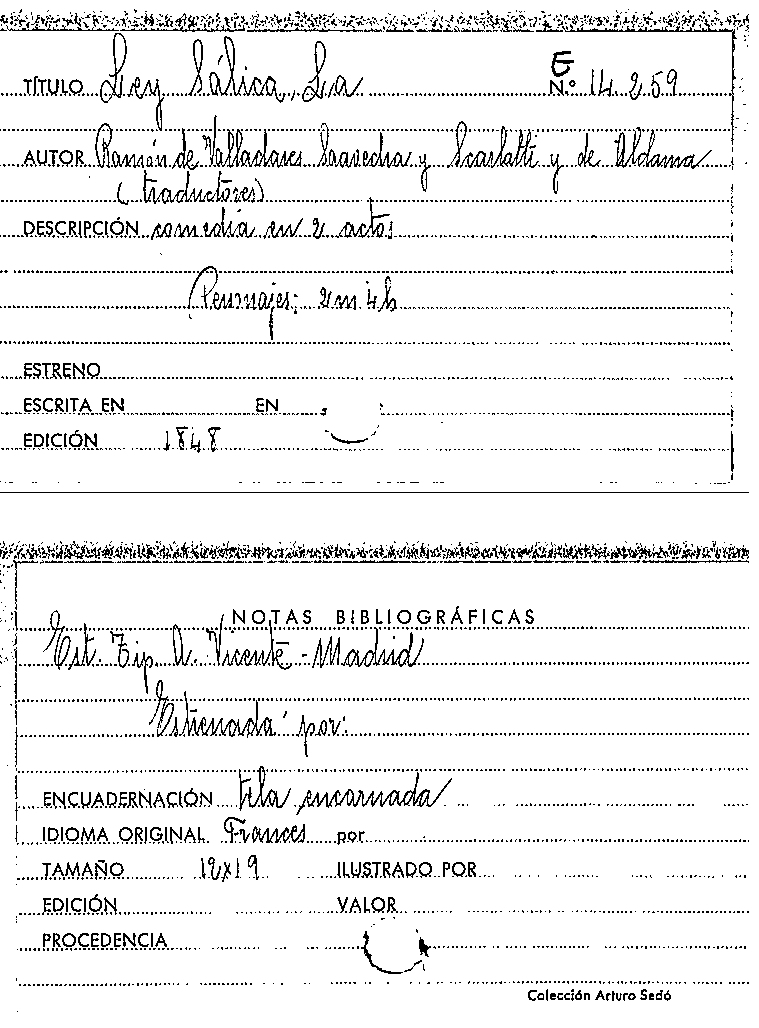 TÍTULO Ley Sálica, La
E
N.º 14.259
AUTOR Ramón de Valladares Saavedra y Scarlatti y de Aldama
(traductores)
DESCRIPCIÓN comedia en 2 actos
Personajes: 2m 4h
ESTRENO
ESCRITA EN EN
EDICIÓN 1848
NOTAS BIBLIOGRÁFICAS
Est. Tip. A. Vicente - Madrid
Estrenada por:
ENCUADERNACIÓN tela encarnada
IDIOMA ORIGINAL Frances por
TAMAÑO 12x19 ILUSTRADO POR
EDICIÓN VALOR
PROCEDENCIA
Colección Arturo Sedó